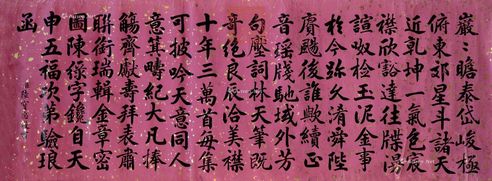 巖巖瞻泰岱峻極
俯東郊星斗諸天
近乾坤一氣包辰
襟欣豁達往牒漫
諠呶檢玉泥金事
於今弥久淆舜陛
賡颺後誰歟續正
音瑶牋馳域外芳
句壓詞林天筆既
哥絶良辰洽美襟
十年三萬首每集
可披吟天意同人
意箕疇紀大凡捧
觴齊獻壽拜表肅
聨銜瑞輯金章密
圖陳保字鑱自天
申五福次苐驗琅
函